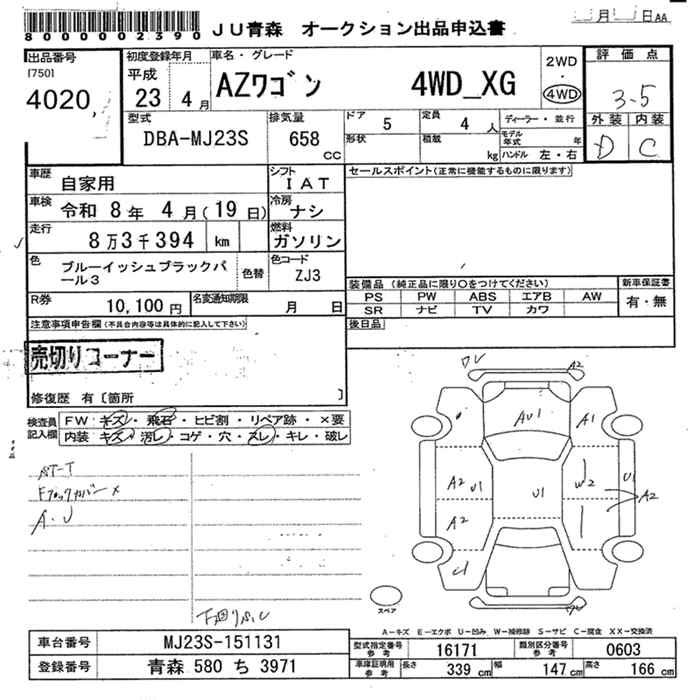 8000002390
JU青森 オークション出品申込書
月 日 AA
出品番号
[750]
4020
初度登録年月
平成
23 4月
車名・グレード
AZワゴン 4WD_XG
2WD
・
4WD
評価点
3.5
外装 内装
D C
型式
DBA-MJ23S
排気量
658
cc
ドア
5
定員
4 人
ディーラー・並行
形状
積載
kg
モデル年式 年
ハンドル 左・右
車歴
自家用
シフト
IAT
セールスポイント(正常に機能するものに限ります)
車検
令和 8年 4月(19日)
冷房
ナシ
走行
8万3千394 km
燃料
ガソリン
色
ブルーイッシュブラックパール3
色替
色コード
ZJ3
装備品(純正品に限り○をつけてください)
新車保証書
PS PW ABS エアB AW
有・無
SR ナビ TV カワ
R券
10,100円
名変通知期限
月 日
後日品
注意事項申告欄(不具合内容等は具体的に記入して下さい)
売切りコーナー
修復歴 有〔箇所 〕
検査員記入欄
FW:キズ・飛石・ヒビ割・リペア跡・×要
内装・キズ・汚レ・コゲ・穴・スレ・キレ・破レ
A2
AU1
A1
A2
U1
A2
U1
W2
U1
A2
スペア
A−キズ E−エクボ U−凹み W−補修跡 S−サビ C−腐食 XX−交換済
車台番号
MJ23S-151131
型式指定番号参考
16171
類別区分番号参考
0603
登録番号
青森 580 ち 3971
車庫証明用参考
長さ 339 cm
幅 147 cm
高さ 166 cm